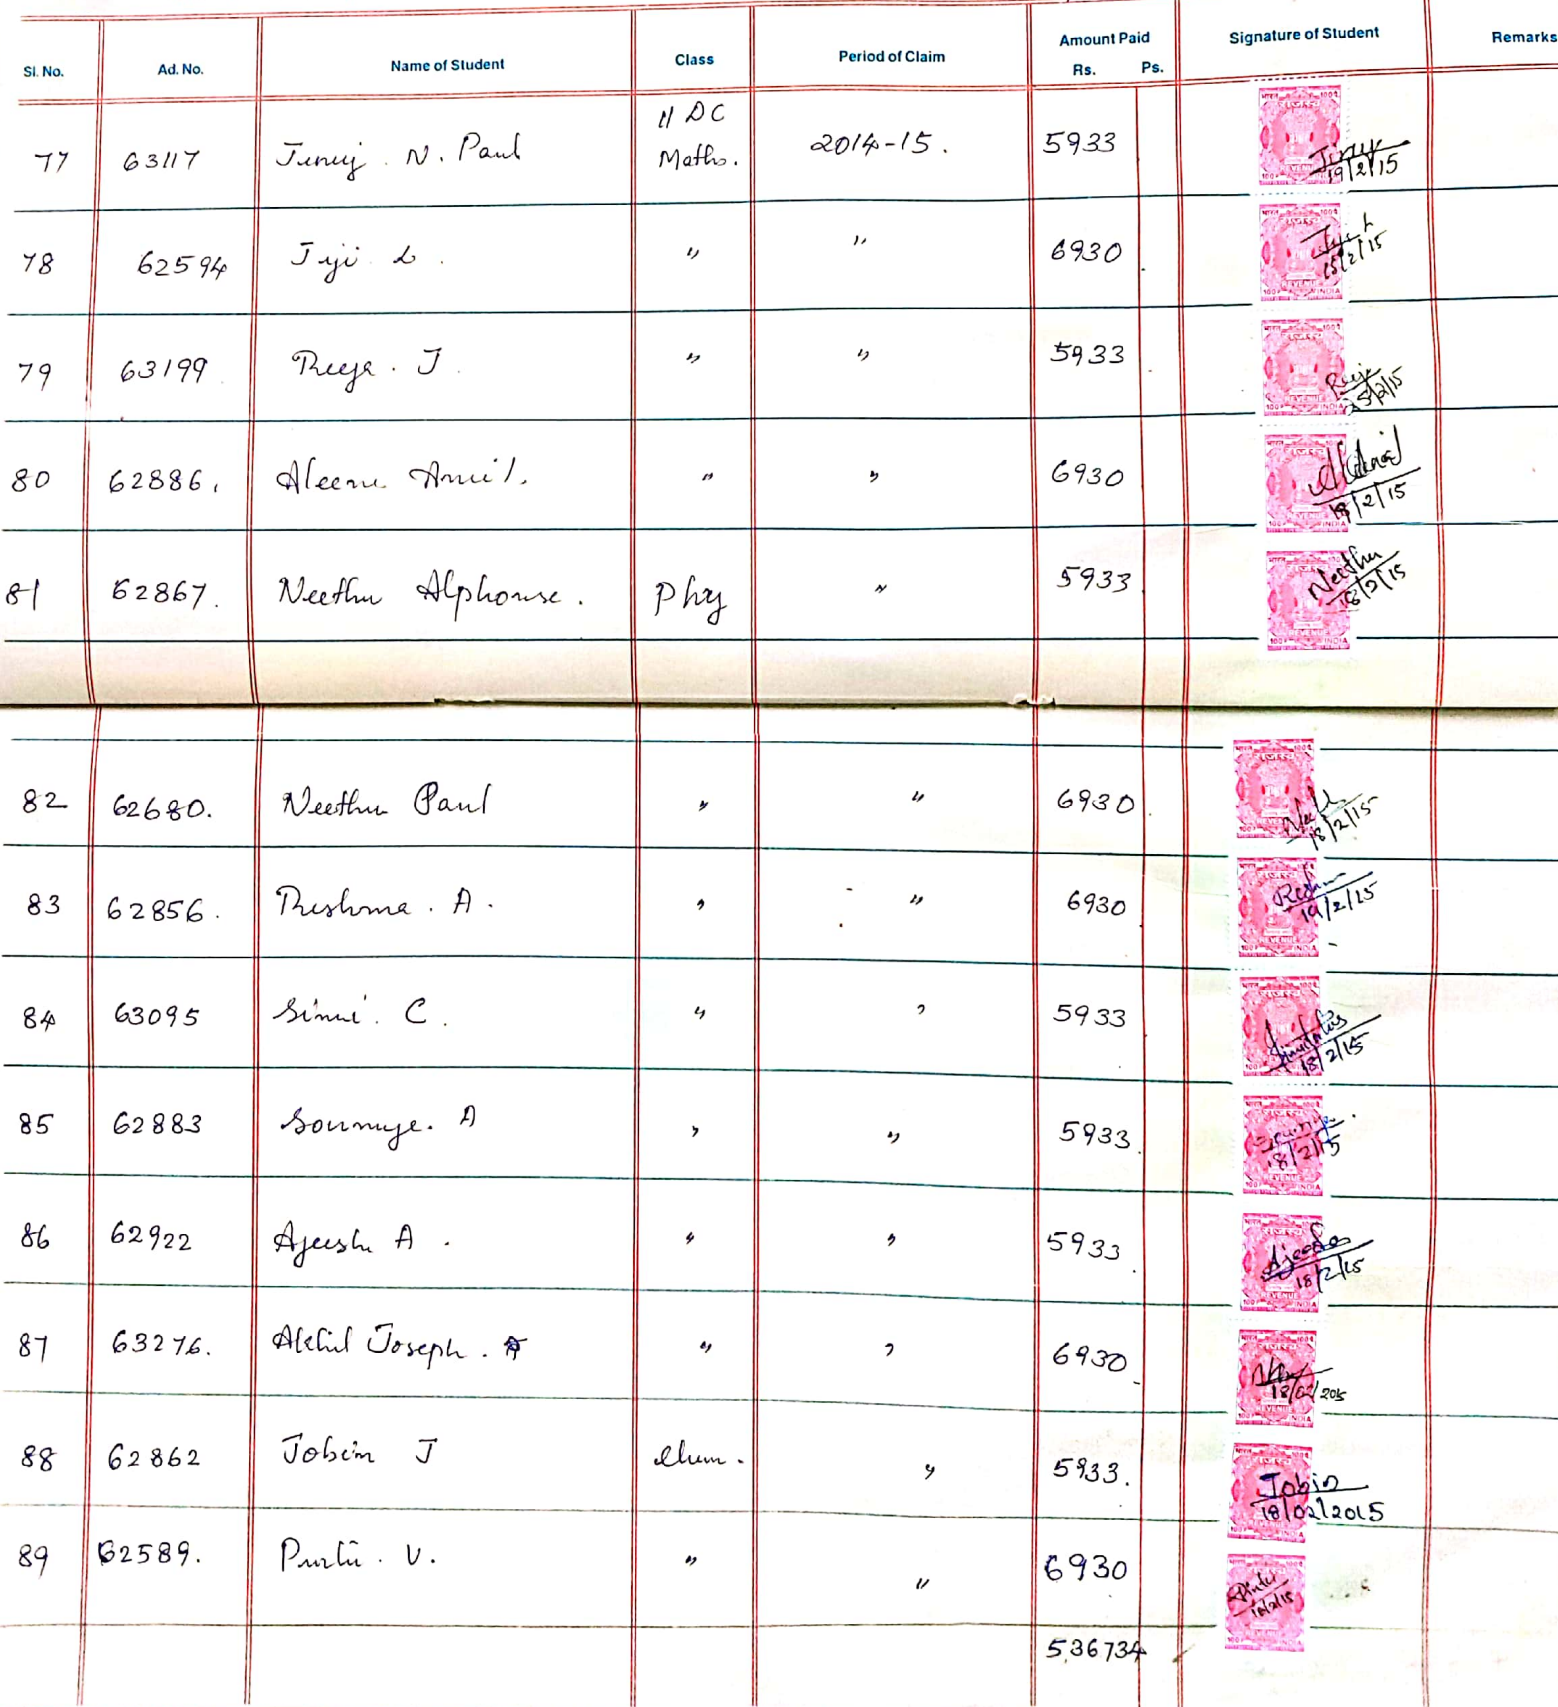 Sl. No. Ad. No. Name of Student Class Period of Claim Amount Paid Rs. Ps. Signature of Student Remarks
II DC
77 63117 N. Paul Maths. 2014-15. 5933 19/2/15
78 62594 Jiji L. " " 6930 15/2/15
79 63199 Reeja. J. " " 5933 Reeja 25/2/15
80 62886. Aleena Amil. " " 6930 18/2/15
81 62867. Neethu Alphonse. Phy " 5933 Neethu 18/2/15
82 62680. Neethu Paul " " 6930 18/2/15
83 62856. Reshma. A. " " 6930 19/2/15
84 63095 Simi. C. " " 5933 18/2/15
85 62883 Soumya. A " " 5933 Soumya 18/2/15
86 62922 Ajeesh A. " " 5933 Ajeesh 18/2/15
87 63276. Akhil Joseph. A " " 6930 18/02/2015
88 62862 Jobin J Chem. " 5933. Jobin 18/02/2015
89 62589. Pintu. V. " " 6930 Pintu 18/2/15
5,36734